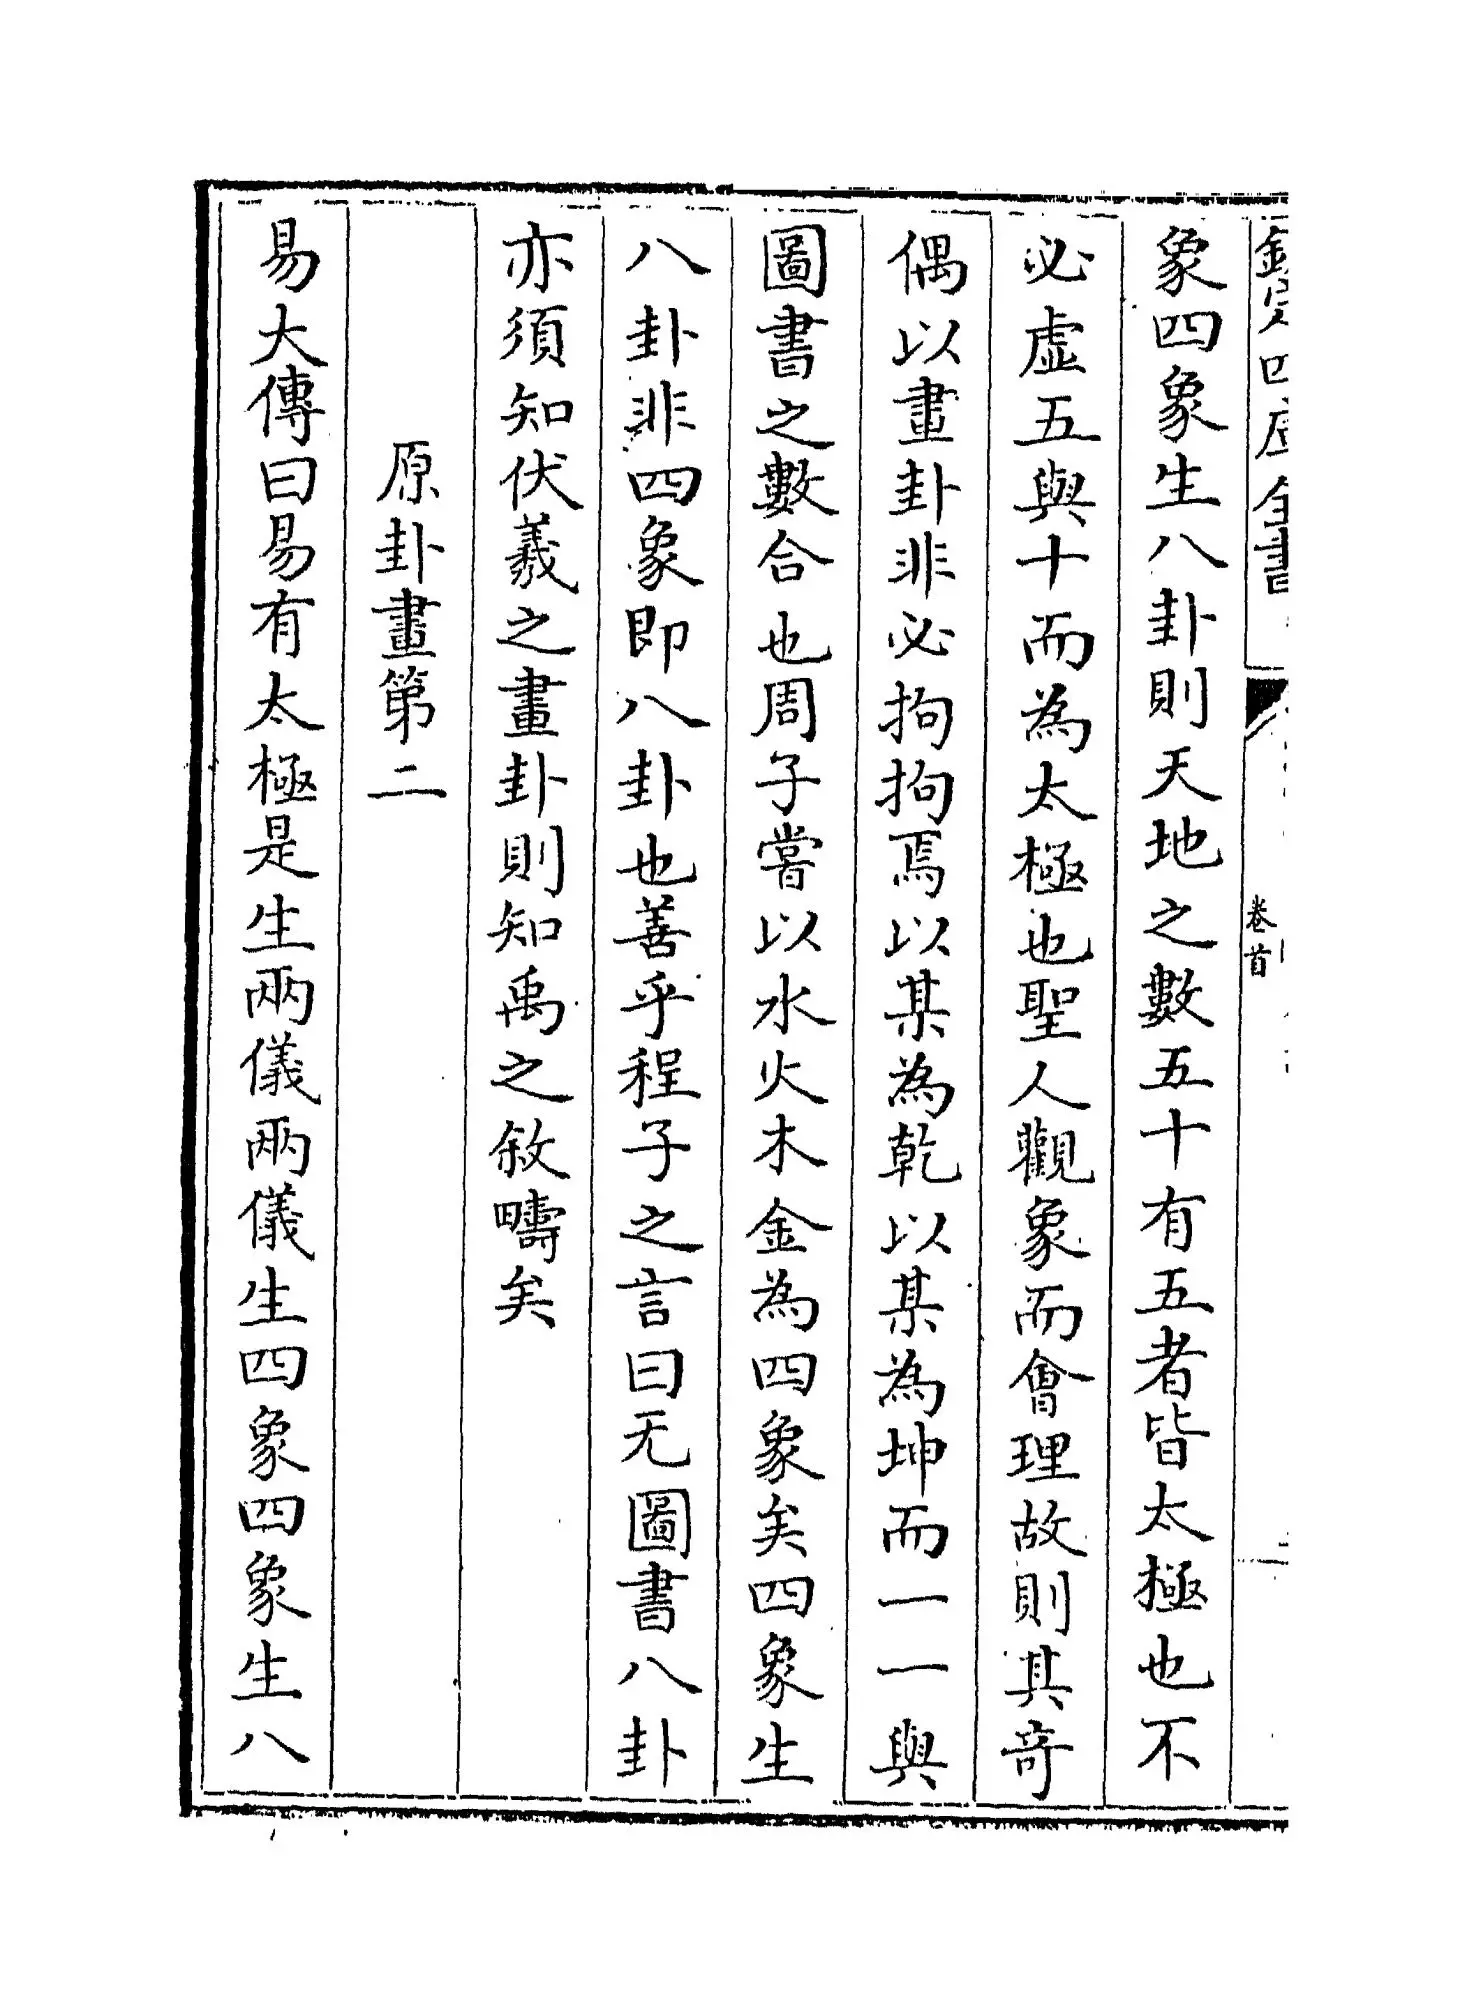 欽定四庫全書
卷首
象四象生八卦則天地之數五十有五者皆太極也不
必虛五與十而為太極也聖人觀象而會理故則其奇
偶以畫卦非必拘拘焉以某為乾以某為坤而一一與
圖書之數合也周子嘗以水火木金為四象矣四象生
八卦非四象即八卦也善乎程子之言曰无圖書八卦
亦須知伏羲之畫卦則知禹之敘疇矣
原卦畫第二
易大傳曰易有太極是生兩儀兩儀生四象四象生八